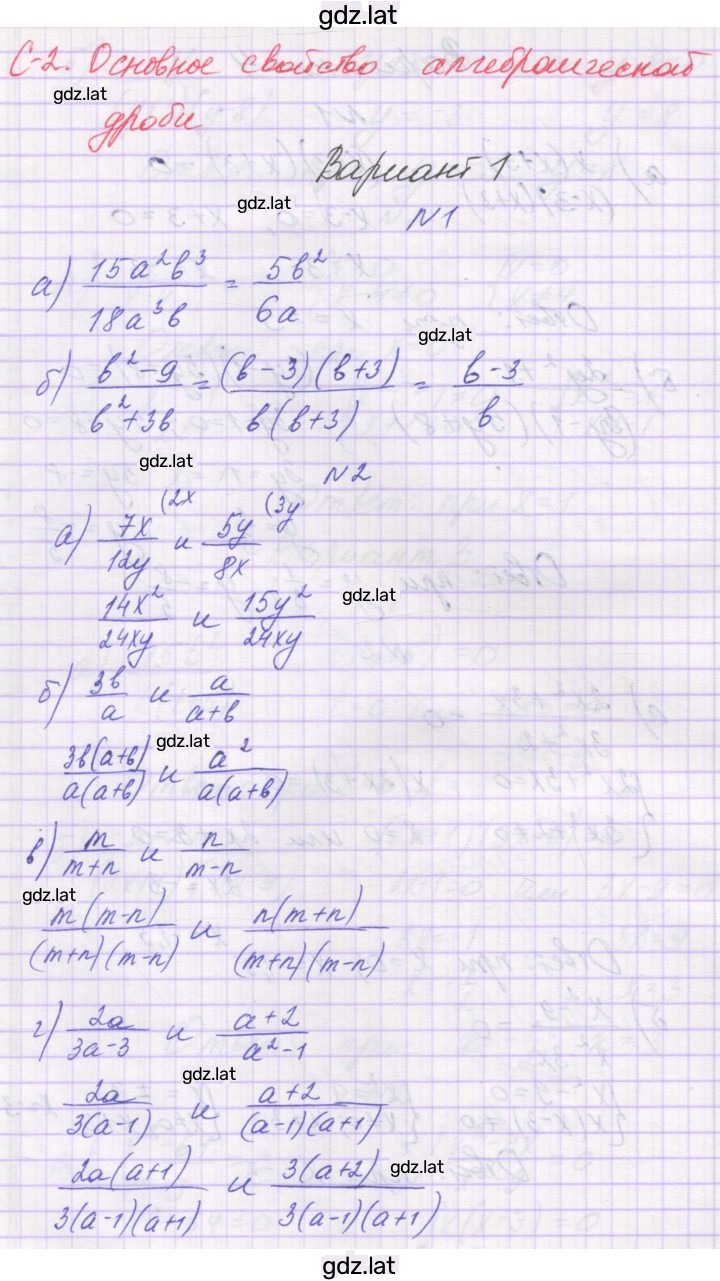 gdz.lat
С-2. Основное свойство алгебраической
gdz.lat
дроби
Вариант 1
gdz.lat
N1
а) 15a²b³/18a³b = 5b²/6a
gdz.lat
б) b²-9/b²+3b = (b-3)(b+3)/b(b+3) = b-3/b
gdz.lat
N2
а) 7x/12y (2x и 5y/8x (3y
14x²/24xy и 15y²/24xy
gdz.lat
б) 3b/a и a/a+b
gdz.lat
3b(a+b)/a(a+b) и a²/a(a+b)
в) m/m+n и n/m-n
gdz.lat
m(m-n)/(m+n)(m-n) и n(m+n)/(m+n)(m-n)
г) 2a/3a-3 и a+2/a²-1
gdz.lat
2a/3(a-1) и a+2/(a-1)(a+1)
2a(a+1)/3(a-1)(a+1) и 3(a+2)/3(a-1)(a+1)
gdz.lat
gdz.lat